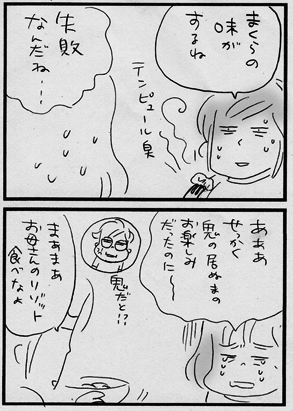 まくらの
味が
するね
テンピュール臭
失敗
なんだね…
あああ
せっかく
鬼の居ぬま の
お楽しみ
だったのに〜
鬼だと!?
まあまあ
お母さんのリゾット
食べなよ